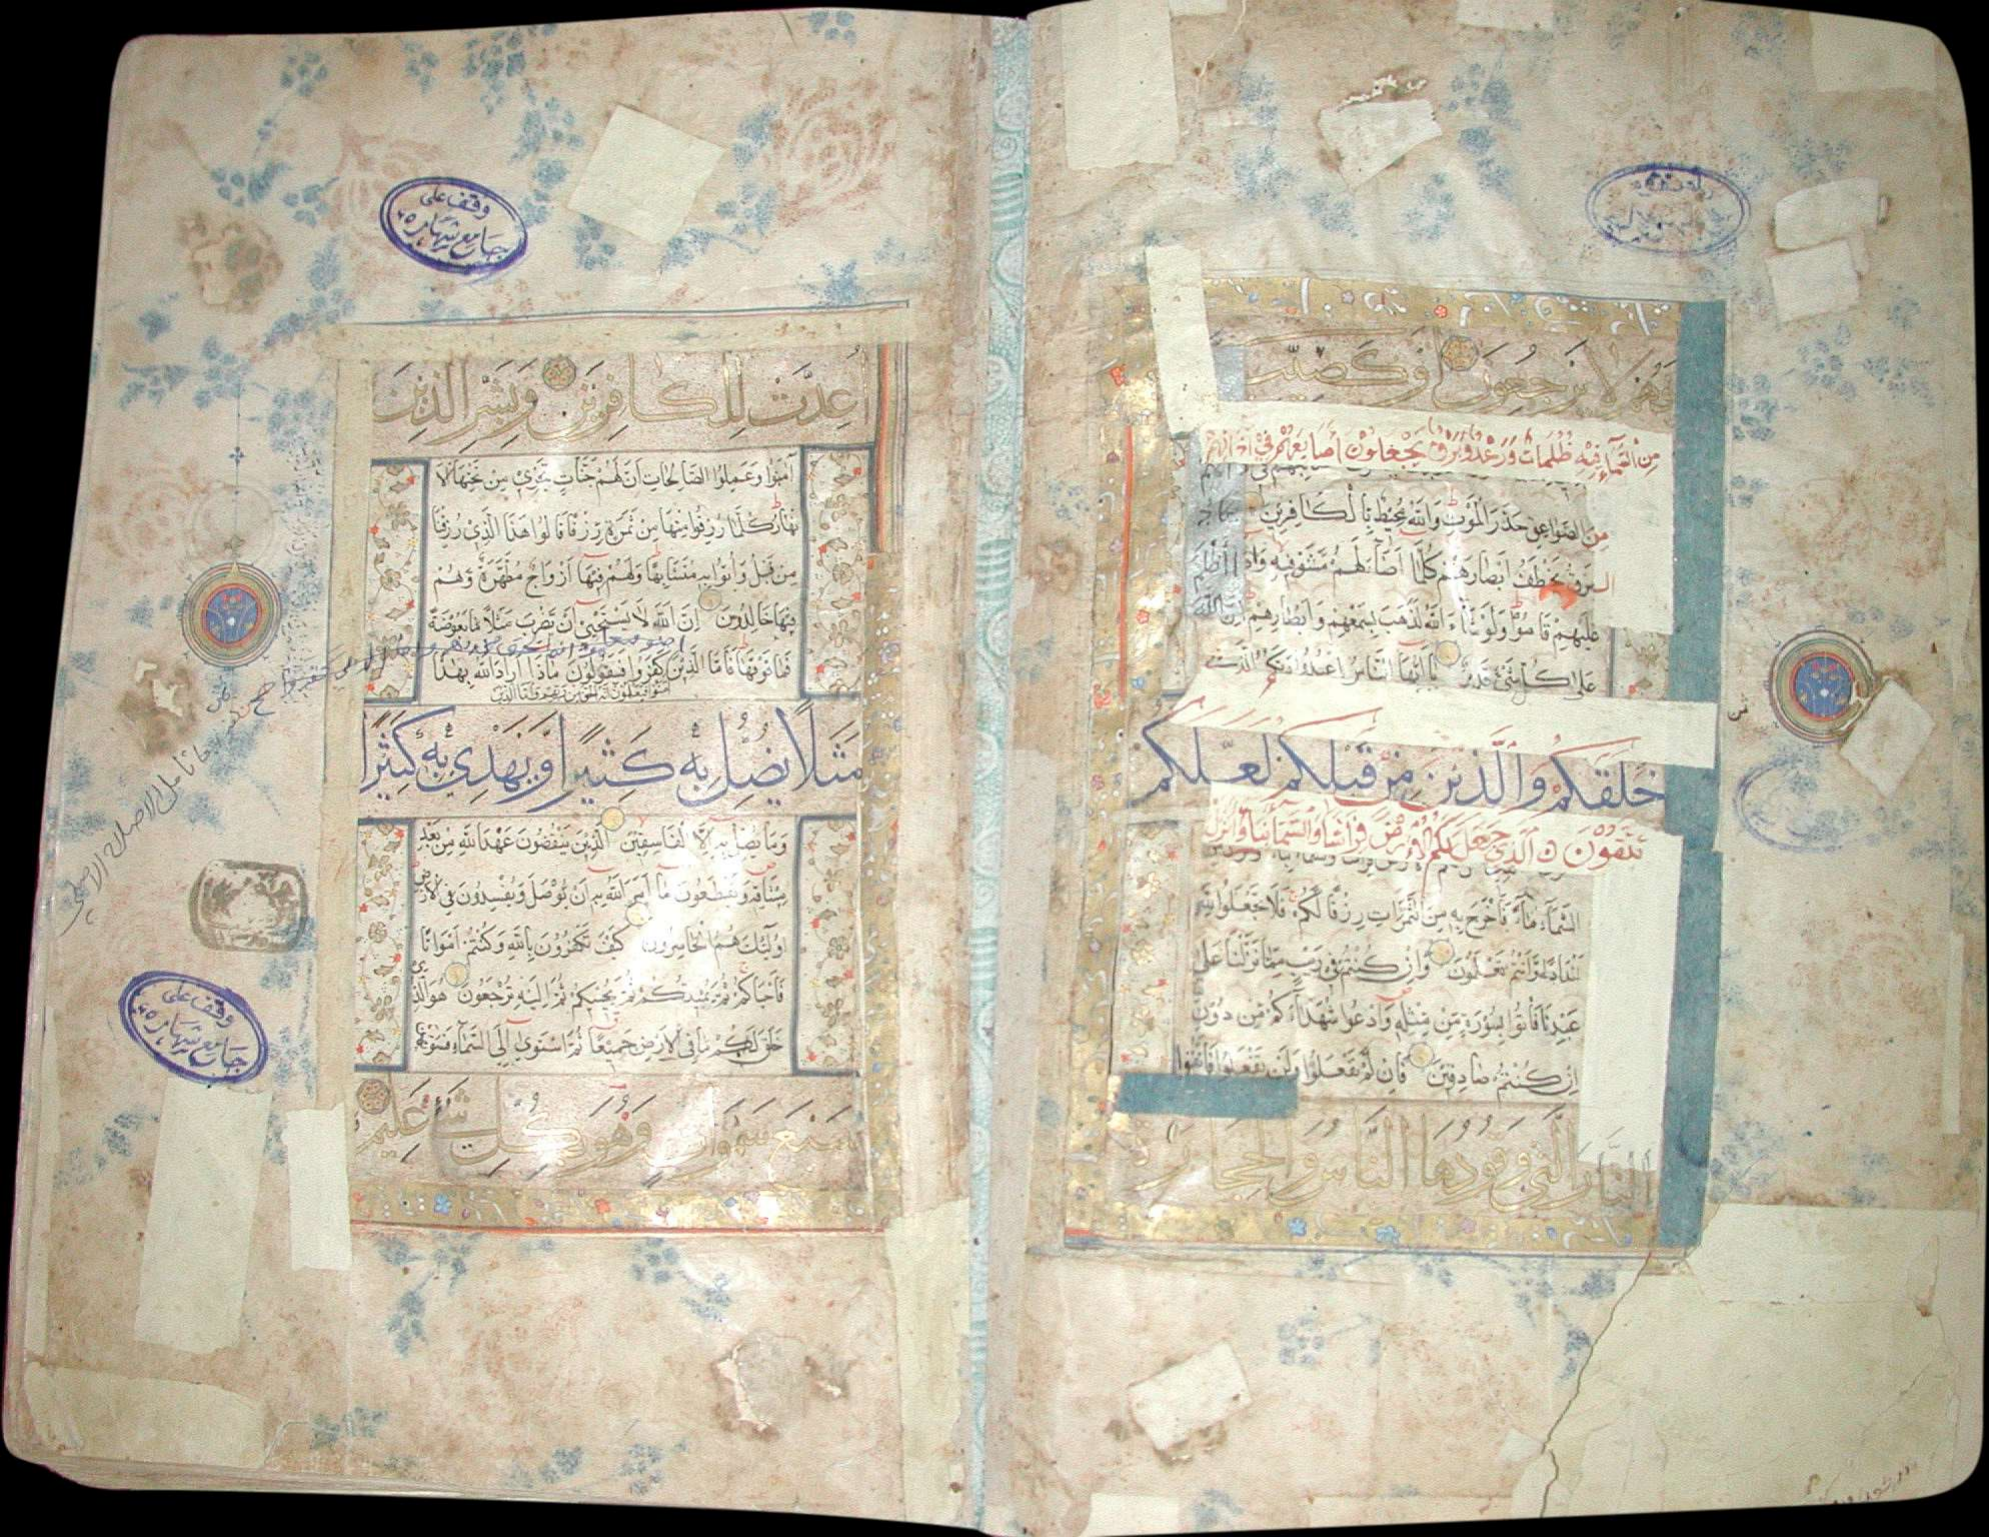 فهم لا يرجعون او كصيب
من السماء فيه ظلمات ورعد وبرق يجعلون اصابعهم في آذانهم
من الصواعق حذر الموت والله محيط بالكافرين
البرق يخطف ابصارهم كلما اضاء لهم مشوا فيه واذا اظلم
عليهم قاموا ولو شاء الله لذهب بسمعهم وابصارهم ان الله
على كل شيء قدير يا ايها الناس اعبدوا ربكم الذي
خلقكم والذين من قبلكم لعلكم
تتقون الذي جعل لكم الارض فراشا والسماء بناء وانزل
السماء ماء فاخرج به من الثمرات رزقا لكم فلا تجعلوا لله
اندادا وانتم تعلمون وان كنتم في ريب مما نزلنا على
عبدنا فاتوا بسورة من مثله وادعوا شهداءكم من دون
ان كنتم صادقين فان لم تفعلوا ولن تفعلوا فاتقوا
النار التي وقودها الناس والحجارة
اعدت للكافرين وبشر الذين
آمنوا وعملوا الصالحات ان لهم جنات تجري من تحتها الا
نهار كلما رزقوا منها من ثمرة رزقا قالوا هذا الذي رزقنا
من قبل واتوا به متشابها ولهم فيها ازواج مطهرة وهم
فيها خالدون ان الله لا يستحيي ان يضرب مثلا ما بعوضة
فما فوقها فاما الذين كفروا فيقولون ماذا اراد الله بهذا
مثلا يضل به كثيرا ويهدي به كثيرا
وما يضل به الا الفاسقين الذين ينقضون عهد الله من بعد
ميثاقه ويقطعون ما امر الله به ان يوصل ويفسدون في الارض
اولئك هم الخاسرون كيف تكفرون بالله وكنتم امواتا
فاحياكم ثم يميتكم ثم يحييكم ثم اليه ترجعون هو الذي
خلق لكم ما في الارض جميعا ثم استوى الى السماء فسوىهن
سبع سموات وهو بكل شيء عليم
وقف على
جامع شهاره
وقف على
جامع شهاره